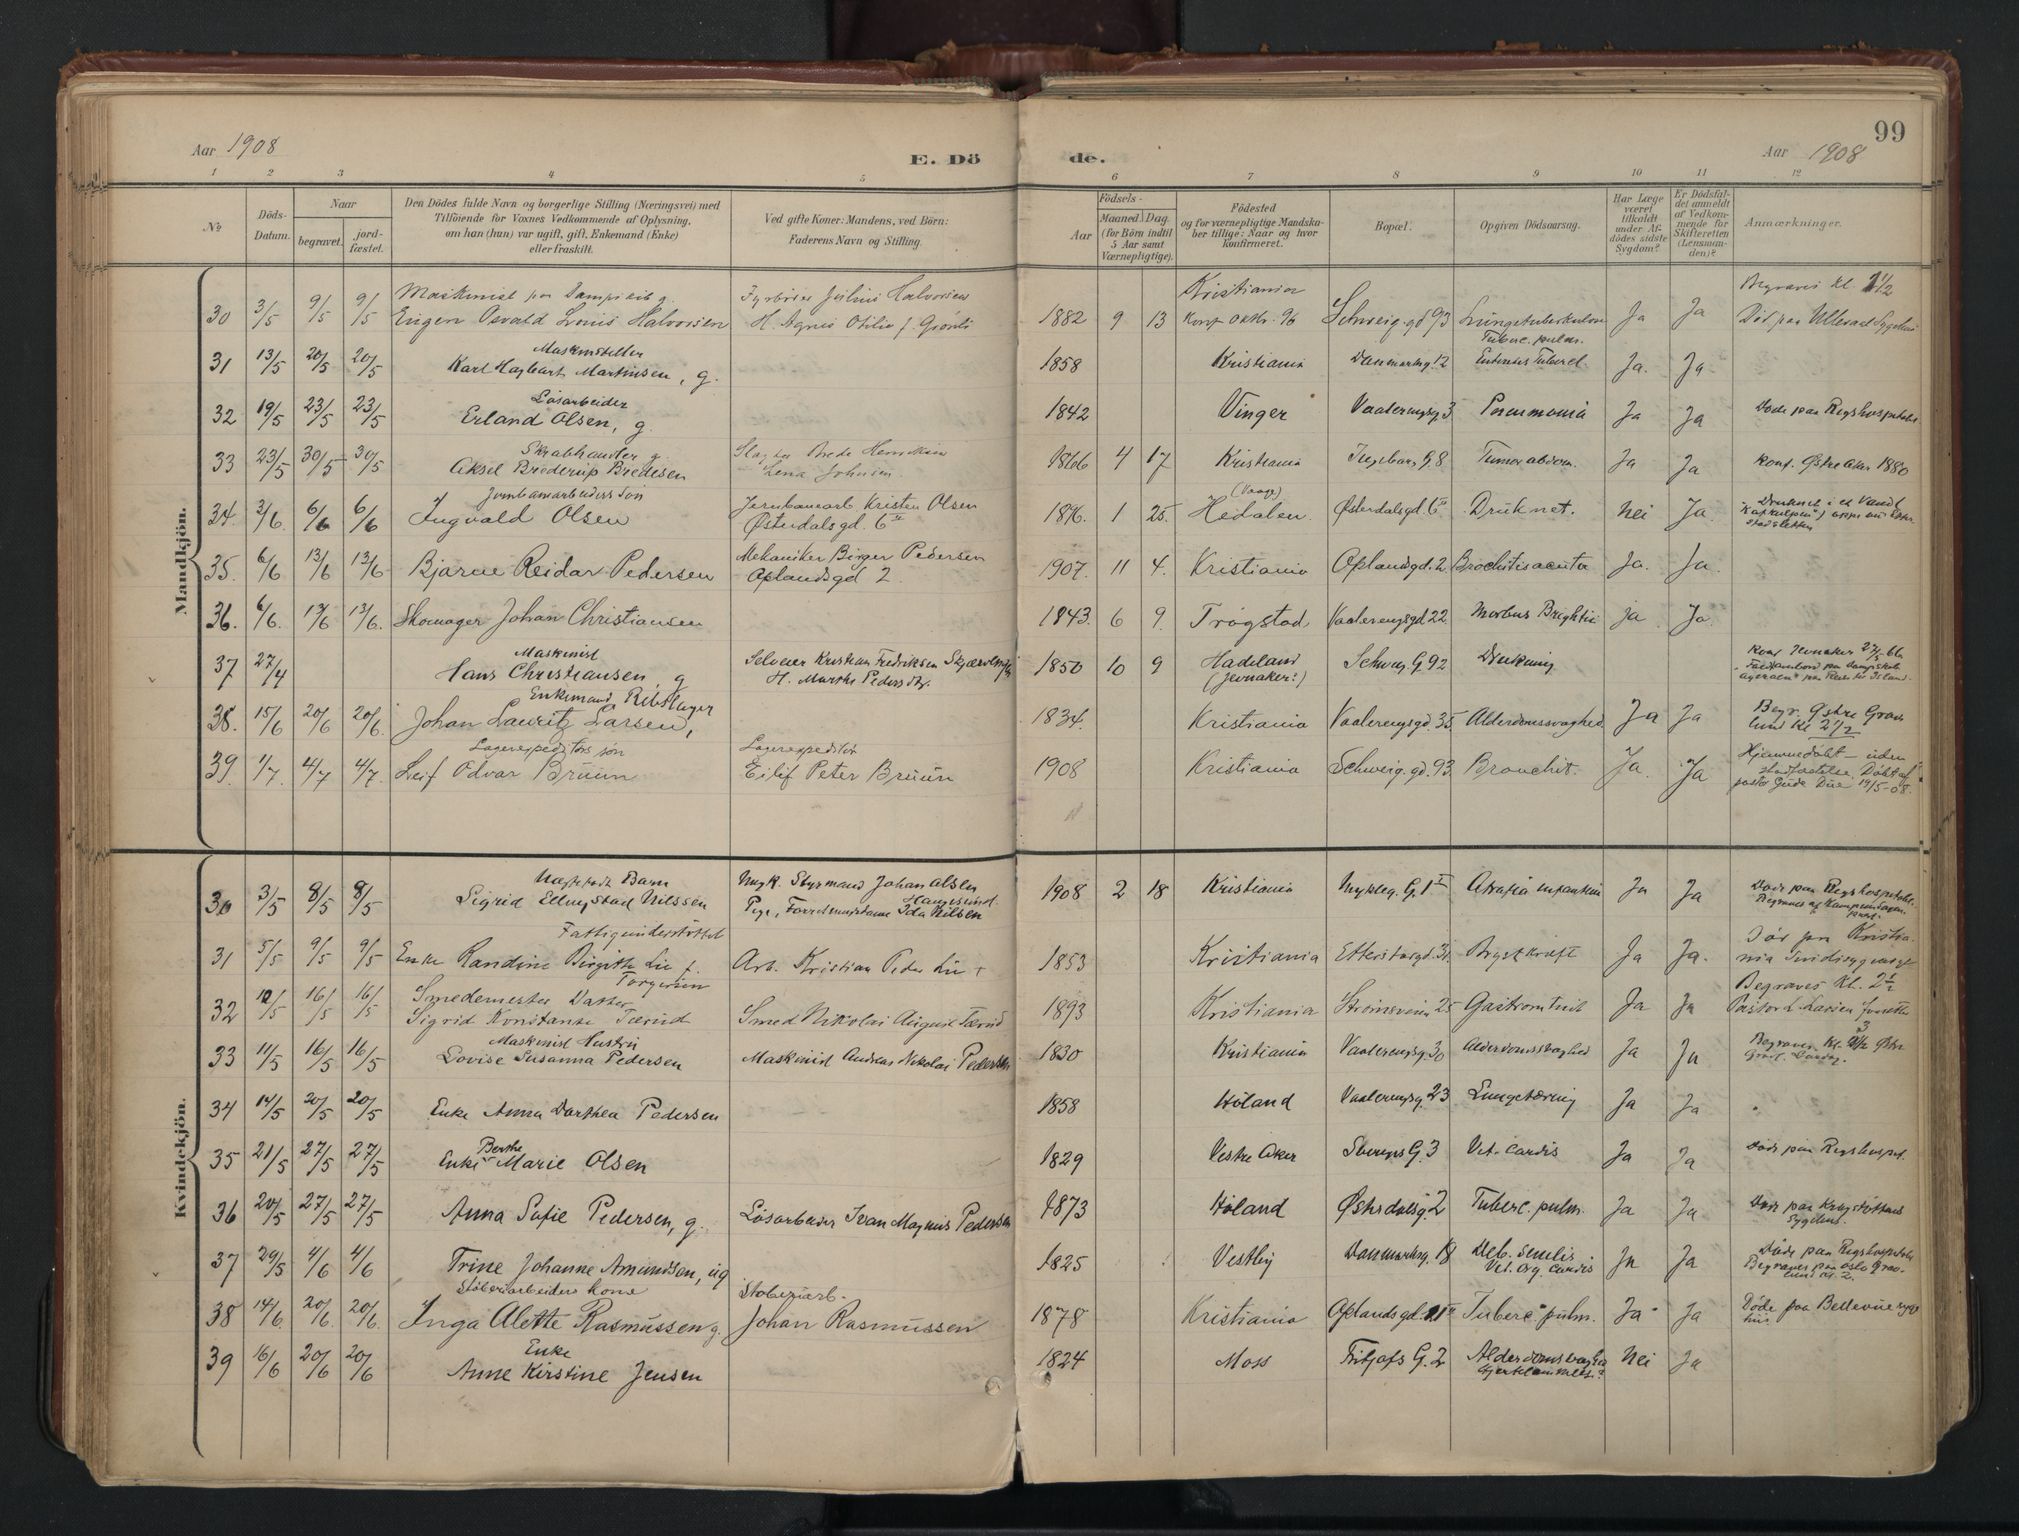 Aar 1908
E. Dö
de.
99
Aar 1908
1 2 3 4 5 6 7 8 9 10 11 12
No
Döds-Datum.
Naar
begravet.
jord-fæstet.
Den Dödes fulde Navn og borgerlige Stilling (Næringsvei) med
Tilföiende for Voxnes Vedkommende af Oplysning,
om han (hun) var ugift, gift, Enkemand (Enke)
eller fraskilt.
Ved gifte Koner: Mandens, ved Börn:
Faderens Navn og Stilling.
Födsels-
Aar
Maaned Dag
(for Börn indtil
5 Aar samt
Værnepligtige).
Födested
og for værnepligtige Mandska-
ber tillige: Naar og hvor
konfirmeret.
Bopæl.
Opgiven Dödsaarsag.
Har Læge
været
tilkaldt
under Af-
dödes sidste
Sygdom?
Er Dödsfal-
det anmeldt
af Vedkom-
mende for
Skifteretten
(Lensman-
den)?
Anmærkninger.
Mandkjön.
30 3/5 9/5 9/5 Eugen Osvald Louis Halvorsen Fyrbøder Julius Halvorsen 1882 9 13 Kristiania Schweig.gd 93 Ja Ja Begraves kl 1½
Død paa Ullevaal Sygehus
31 13/5 20/5 20/5 Karl Hagbart Martinsen, g. 1858 Kristiania Danmarksg. 12 Tuberc. pulm. Ja. Ja
Løsarbeider
32 19/5 23/5 23/5 Erland Olsen, g. 1842 Vinger Vaalerengsg. 3 Pneumonia Ja Ja Døde paa Rigshospitalet
Skrabhandler g.
33 23/5 30/5 30/5 Aksel Brederup Bredesen 1866 4 17 Kristiania Ingebors G. 8 Tumor abdom. Ja Ja Konf. Østre Aker 1880
Jernbanearbeiders søn
34. 3/6. 6/6 6/6 Ingvald Olsen Jernbanearb Kristen Olsen
Østerdalsgd. 6 II 1896. 1 25. Hedalen (Vaage) Østerdalsgd 6 II Druknet. Nei Ja.
35. 6/6 13/6 13/6 Bjarne Reidar Pedersen Mekaniker Birger Pedersen
Oplandsgd 2 1907. 11 4. Kristiania Oplandsgd. 2 Brochitis acuta Ja. Ja.
36. 6/6. 13/6 13/6. Skomager Johan Christiansen 1843. 6 9. Trøgstad, Vaalerengsgd 22. Morbus Brightii ja Ja.
Maskinist
37 27/4 Hans Christiansen, g Selveier Kristian Fredriksen
H. Marthe Pedersdtr. 1850 10 9 Hadeland
(Jevnaker?) Schweig G. 92 Drukning Konf Jevnaker 27/5 66
Enkemand, Rebslager
38. 15/6 20/6 20/6. Johan Lauritz Larsen, 1834. Kristiania Vaalerengsgd 35. Alderdomssvaghed Ja Ja Begr. Østre Grav
lund Kl 2½
Lagerexpeditørs søn
39. 1/7. 4/7 4/7. Leif Odvar Bruun Lagerexpeditør
Eilif Peter Bruun 1908 Kristiania Schweig.gd. 93. Bronchit. Ja. Ja Hjemmedøbt - uden
stadfæstelse. Døbt af
pastor Gude Due 19/5-08.
Kvindekjön.
30 3/5 8/5 8/5 Sigrid Ellingstad Nilssen Ungk. Styrmand Johan Olsen Haugesund
Pige, Ida Nilsen 1908 2 18 Kristiania Nykleg. G. 1 II Atrofia infantum Ja Ja Døde paa Rigshospitalet.
Fattigunderstøttet
31 5/5 9/5 9/5 Enke Randine Birgitte Lie f. Torgersen Arb. Kristian Peder Lie + 1853 Kristiania Etterstadgd. 31. Brystkræft Ja Ja. Dør paa Kristia
nia
Smedemester Datter
32 12/5 16/5 16/5 Sigrid Konstanse Tærud Smed Nikolai August Tærud 1893 Kristiania Strømsveien 25 Ja Ja Begraves Kl. 2½
Pastor L. Larsen forretter
Maskinist Hustru
33 11/5 16/5 16/5 Lovise Susanna Pedersen Maskinist Andreas Nikolai Pedersen 1830 Kristiania Vaalerengsg. 30 Alderdomssvaghed Ja Ja
34 14/5 20/5 20/5 Enke Anna Dorthea Pedersen 1858 Høland Vaalerengsg. 23 Lungetæring Ja Ja
35 21/5 27/5 27/5 Enke Berthe Marie Olsen 1829 Vestre Aker Sverres G. 3 Vit. cordis Ja Ja Døde paa Rigshospit.
36 20/5 27/5 27/5 Anna Sofie Pedersen, g. Løsarbeider Ivan Magnus Pedersen 1873 Høland Østrdalsg. 2 Tuberc. pulm. Ja Ja
37 29/5 4/6 4/6 Trine Johanne Amundsen, ug 1825 Vestby Danmarksg. 18 Deb. senilis
Vit. org. cordis Ja Ja Døde paa Rigshospitalet
Begraves paa Oslo Grav-
lund kl. 2.
Støberiarbeiders kone
38 14/6 20/6. 20/6. Inga Alette Rasmussen g. Støberiarb.
Johan Rasmussen 1878 Kristiania Tuberc. pulm. Ja Ja Døde paa Bellevue syge
hus.
Enke
39 16/6 20/6 20/6 Anne Kirstine Jensen 1824 Moss Fritjofs G. 2 Nei Ja